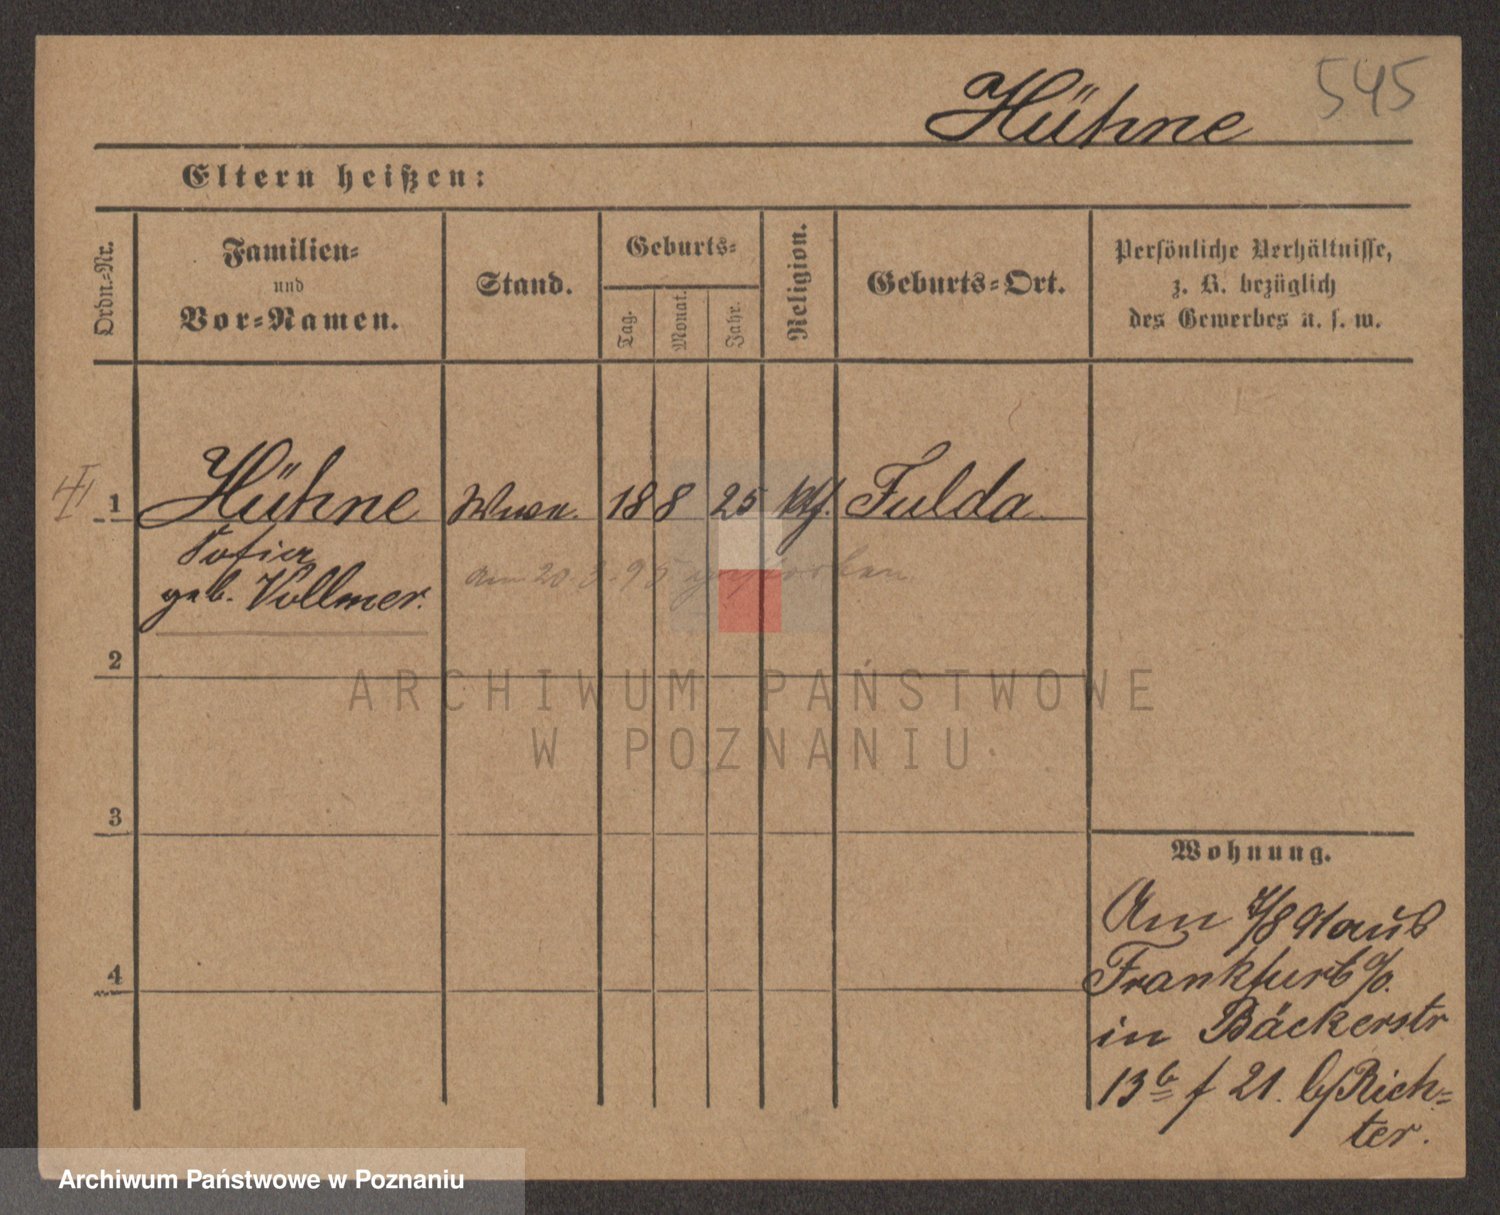 545
Hühne
Eltern heißen:
Ordn.-Nr.
Familien-
und
Vor-Namen.
Stand.
Geburts-
Tag.
Monat.
Jahr.
Religion.
Geburts-Ort.
Persönliche Verhältnisse,
z. B. bezüglich
des Gewerbes u. s. w.
1 Hühne Wwe. 18 8 25 kth. Fulda
Sofia
geb. Vollmer.
am 20.3.95 gestorben
2
ARCHIWUM PAŃSTWOWE
W POZNANIU
3
Wohnung.
Am 4/8 91 aus
Frankfurt a/O.
in Bäckerstr
4
13b f 21. b/Rich-
ter.
Archiwum Państwowe w Poznaniu